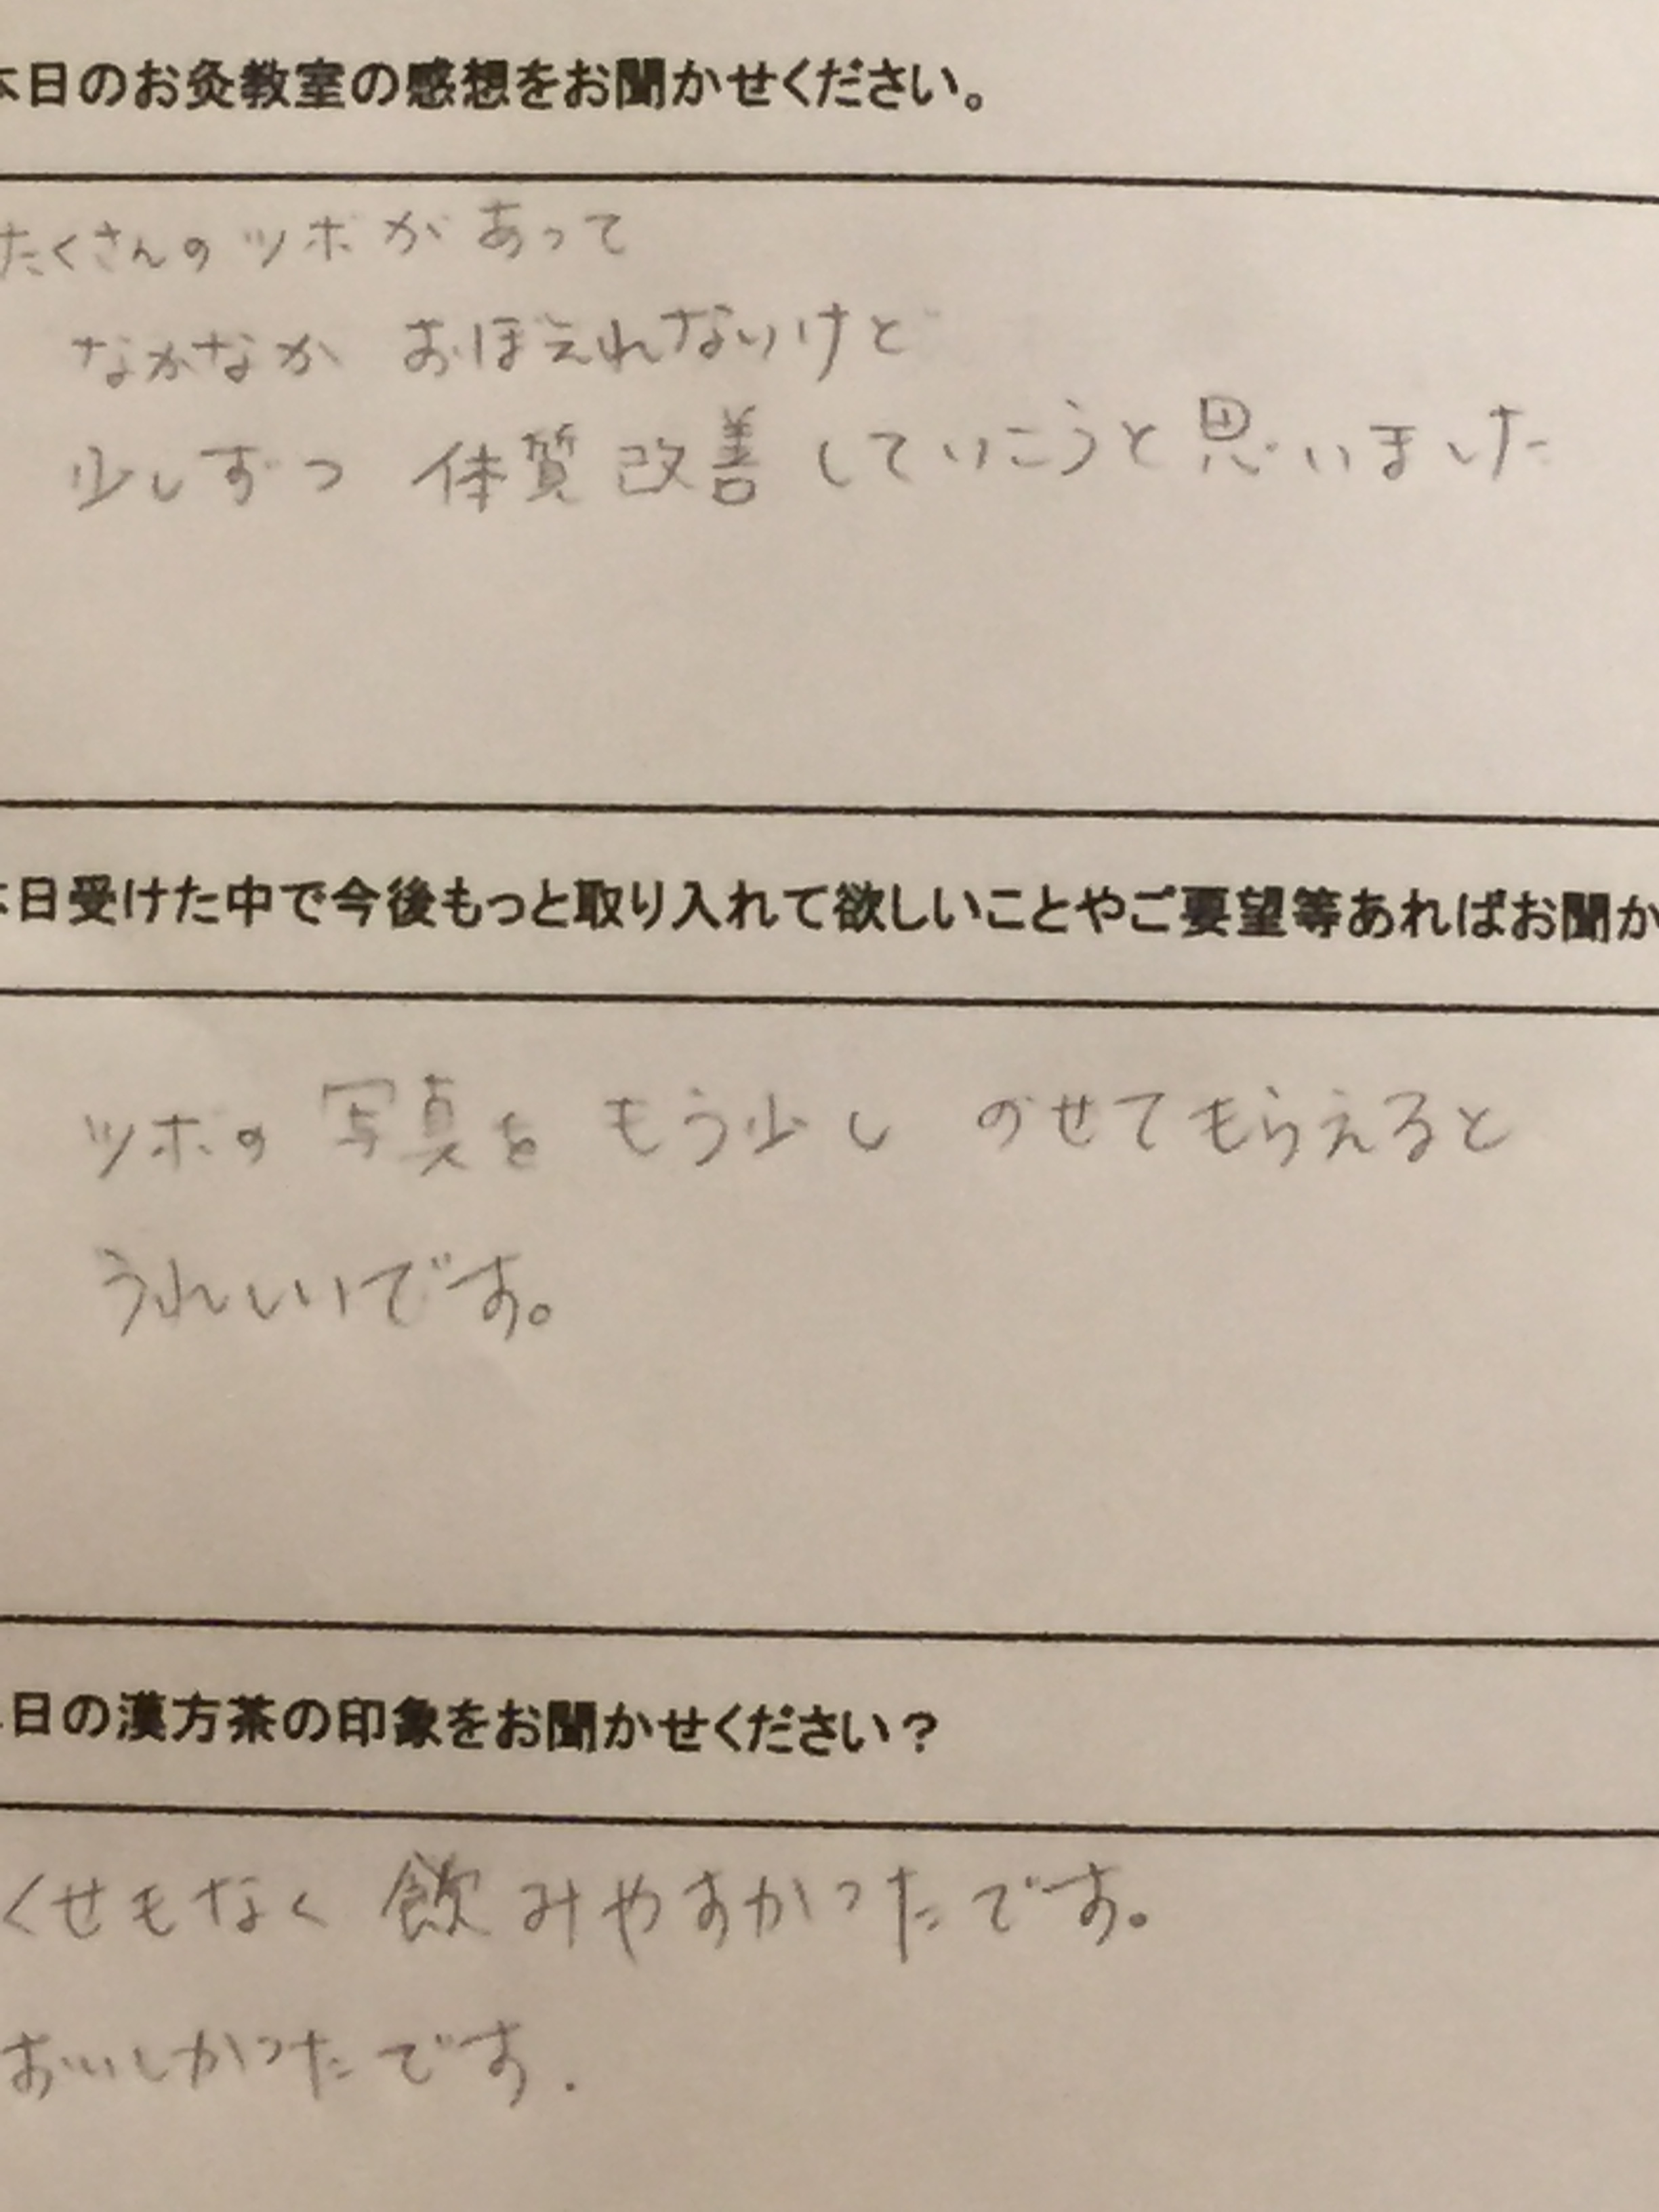 本日のお灸教室の感想をお聞かせください。
たくさんのツボがあって
なかなか おぼえれないけど
少しずつ 体質改善していこうと思いました
本日受けた中で今後もっと取り入れて欲しいことやご要望等あればお聞か
ツボの写真を もう少し のせてもらえると
うれしいです。
日の漢方茶の印象をお聞かせください？
くせもなく 飲みやすかったです。
おいしかったです.